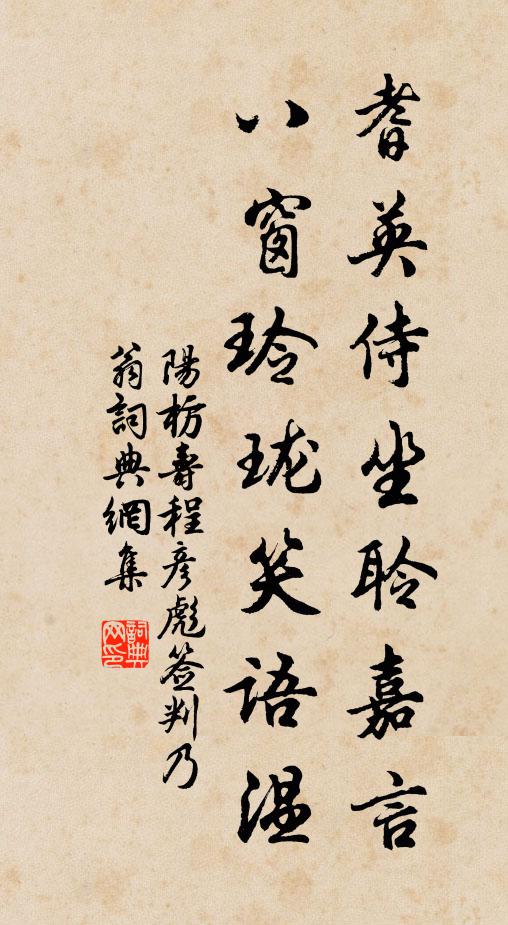 耆英侍坐聆嘉言
八窗玲珑笑語温
陽枋壽程彦彪簽判乃
翁詞典網集
詞典網印